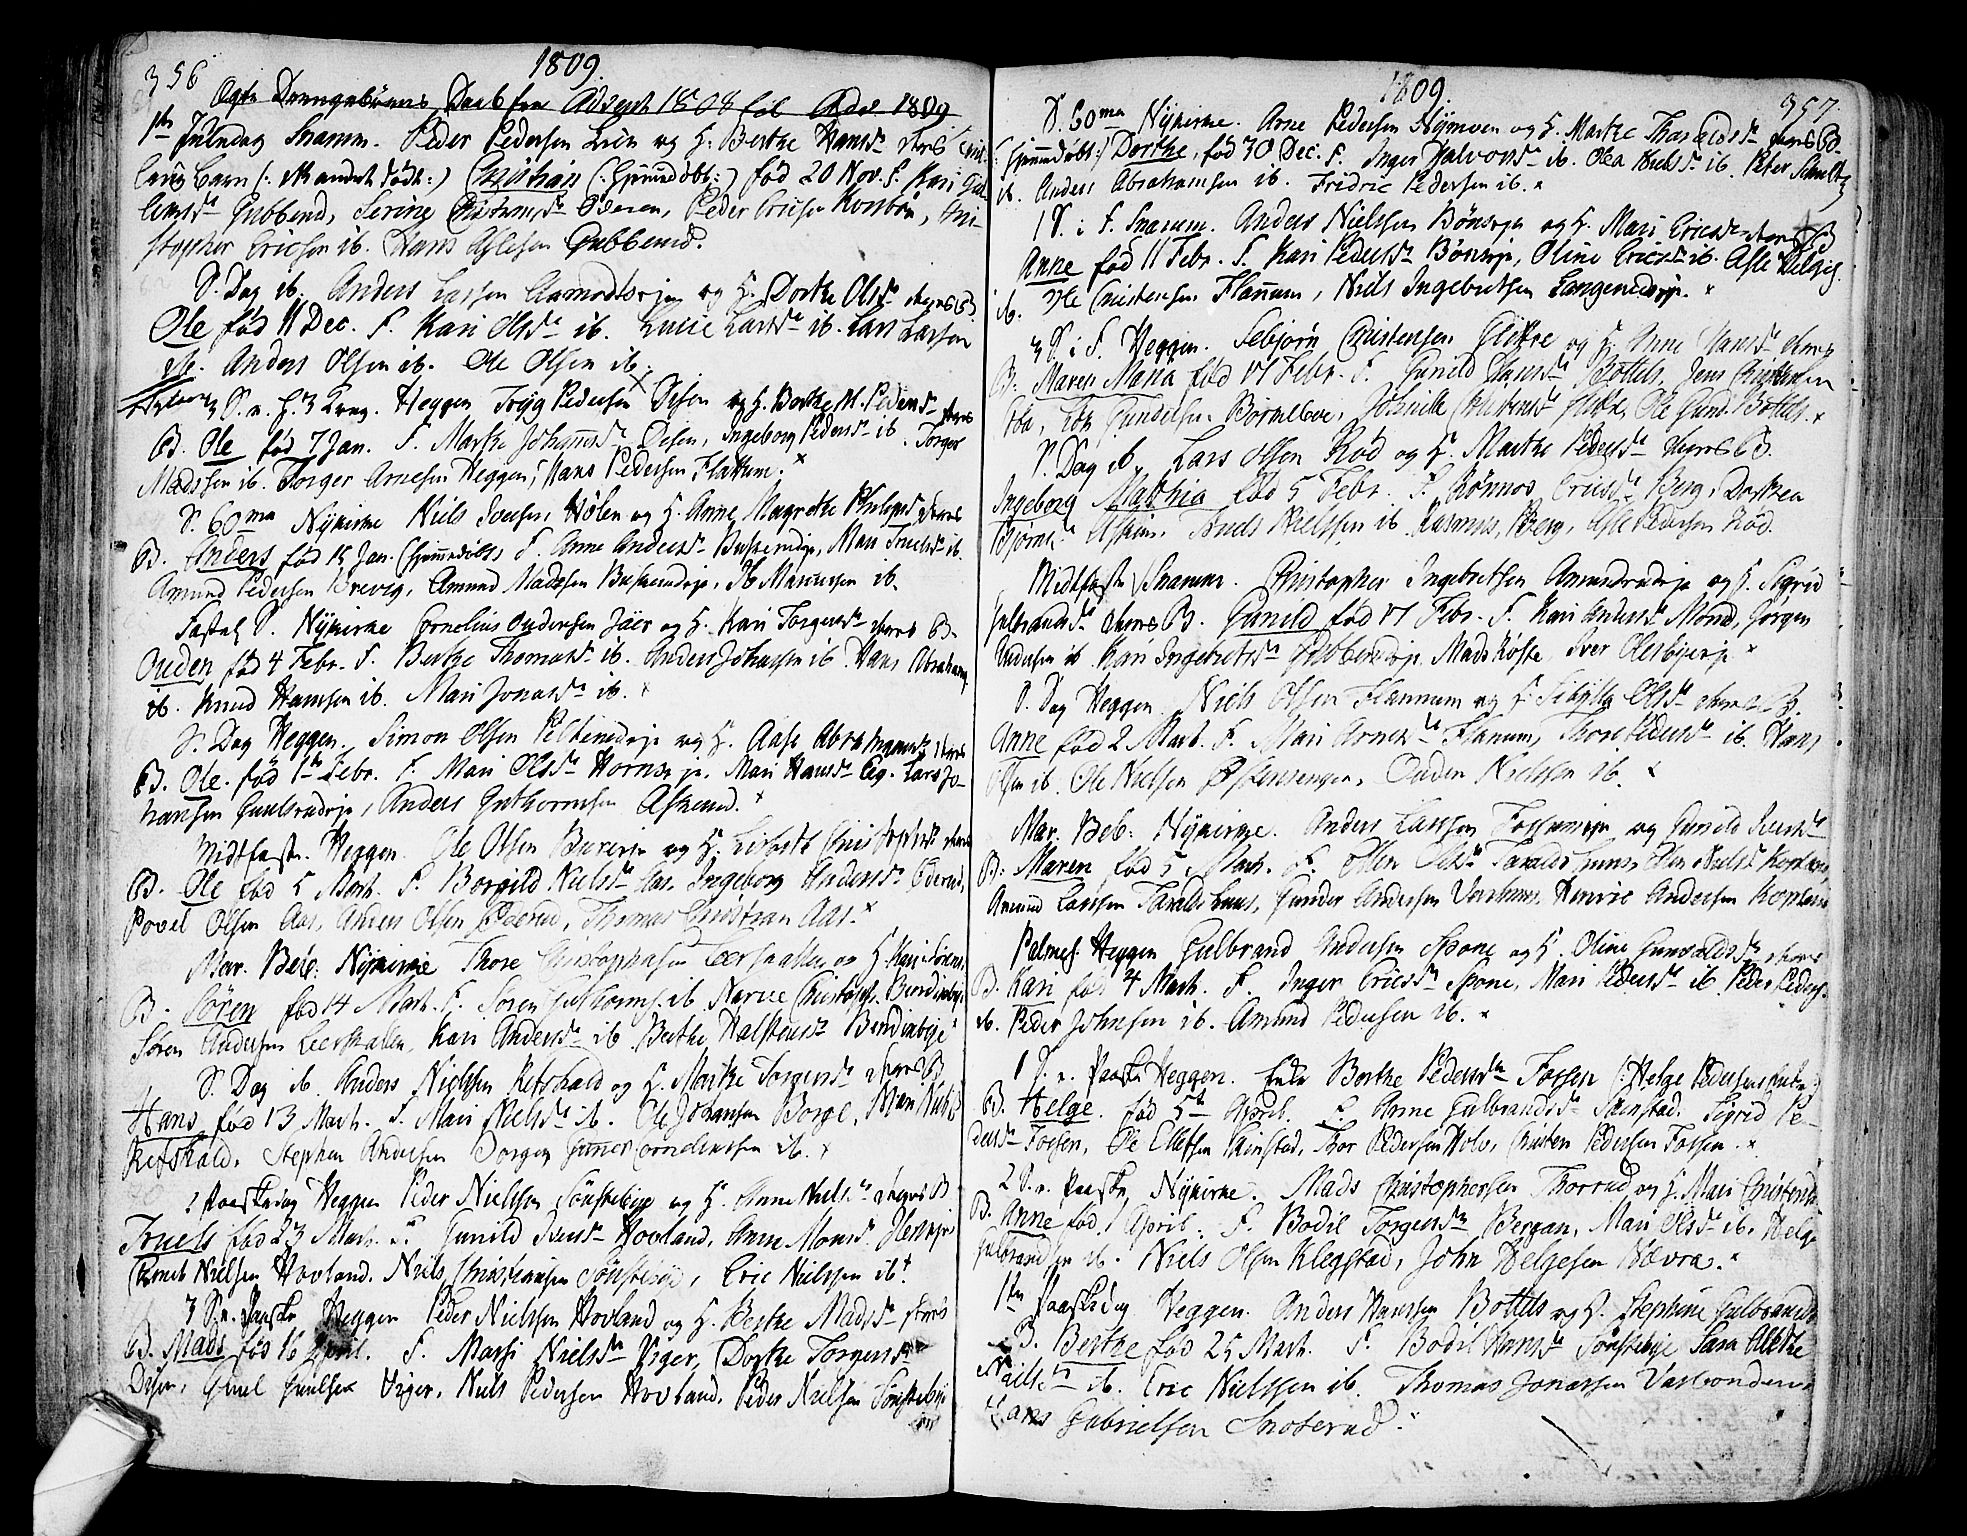 356
1809.
Ægte Drengebørns Daab fra Advent 1808 til Adv. 1809
1ste Juledag Snarum. Peder Pedersen Lein og H. Berthe Hansdr deres
Barn (: det andet død :) Christian (: hjemmedøbt :) fød 20 Nov. F. Kari
Gubberud, Sirine Oderen, Peder Ericsen Korsbøn, Chri-
stopher Ericsen ib. Hans Aslesen Gubberud.
S. Dag ib. Anders Larsen Aamodtseje og H. Dorthe Olsdr deres B
Ole fød 11 Dec. F. Kari Olsdr ib. Lucie Larsdr ib. Lars Larsen
ib. Anders Olsen ib. Ole Olsen ib.
3 S. e. H. 3 Kong. Heggen Tryg Pedersen Disen og H. Berthe M. Pedersdr deres
B. Ole fød 7 Jan. F. Marthe Johannsdr Disen, Ingeborg Pedersdr ib. Torger
Madssen ib. Torger Arnesen Heggen, Hans Pedersen Flattum. x
S. 60ma Nykirke Niels Iversen Hølen og H. Anne Magrethe Philipsd deres
B. Anders fød 15 Jan. (hjemmedøbt) F. Anne Andersdr Buskerudeje, Mari Truelsdr ib.
Amund Pedersen Brevig, Amund Madssen Buskerudeje, Ib Marcussen ib.
Fastel. S. Nykirke Cornelius Oudensen Jäer og H. Kari Torgersdr deres B.
Ouden fød 4 Febr. F. Berthe Thomasdr ib. Anders Johansen ib. Hans Abrahams.
ib. Knud Hansen ib. Mari Jonasdr ib. x
S. Dag Heggen. Simon Olsen Peltenedeje og H. Aase Abrahamsdr deres
B. Ole fød 1ste Febr. F. Mari Olsdr Hornseje. Mari Hansdr Eg. Lars Jo-
hansen Gunlsrudeje, Anders Guthormsen Askerud. x
Midtfaste. Heggen. Ole Olsen Bureeje og H. Lisbeth Christophersd deres
B. Ole fød 5 Mart. F. Borgild Nielsdr Aas. Ingeborg Andersdr Oderud,
Povel Olsen Aas, Anders Olsen Oderud, Thomas Christian Aas. x
Mar. Beb: Nykirke Thore Christophersen Leerskallen og H. Kari Sørens
B. Søren fød 14 Mart. F. Søren Guthorms. ib Narve Christoph. Bendinbye
Søren Andersen Leerskallen, Kari Andersdr ib Berthe Halstensdr Bendinbye
S. Dag ib. Anders Nielssen Refshald og H. Marthe Torgersdr deres B
Hans fød 13 Mart. F. Mari Nielsdr ib. Ole Johansen Borge, Mari Niels
Refshald. Stephen Andersen Dorgen Gunner Corneliussen ib. x
2 Paaskedag Heggen Peder Nielssen Sønstebye og H. Anne Nielsdr deres B
Truels fød 23 Mart. F. Gunild Iversdr Hovland, Anne Monsd.
Nielsen Hovland. Niels Christiansen Sønstebye, Eric Nielssen ib.
3 S. e. Paaske Heggen Peder Nielssen Hovland og H. Berthe Madsdr deres
B. Mads fød 16 April. F. Marthe Nielsdr Viger, Dorthe Torgersdr
Disen, Gunel Gunelsen Viger, Niels Pedersen Hovland, Peder Nielsen Sønstebye
1809.
357.
S. 60ma Nykirke. Arne Pedersen Nymoen og H. Marthe Tharaldsdr deres B.
(: hjemmedøbt :) Dorthe, fød 30 Dec. F. Inger Halvorsdr ib. Olea Nielsdr ib. Peter Schultz
ib. Anders Abrahamsen ib. Fridric Pedersen ib. x
1 S. i F. Snarum. Anders Nielssen Bønseje og H. Mari Ericsdr deres B
Anne fød 11 Febr. F. Kari Pedersdr Bønseje, Oline Ericsdr ib. Asle Helgis.
ib. Ole Christensen Flannum, Niels Ingebretsen Langerudeje. x
3 S. i F. Heggen. Sebjørn Christensen Glotre og H. Anne Hansdr deres
B: Maren Maria fød 17 Febr. F. Gunild Hansdr Bottels, Jens Christensen
Gundersen Bormelbøe, Johnille Christensdr Ole Gund. Bottels. x
S. Dag ib Lars Olsen Rød og H. Marthe Pedersdr deres B.
Ingeborg Mathia fød 5 Febr. F. Rønnov Ericsdr Berg, Dorthea
Bjørnsdr Askim, Truels Nielssen ib Rasmus Berg, Asle Pedersen Rød.
Midtfaste Snarum. Christopher Ingebretsen Amundrudeje og H. Sigrid
Gulbrandsdr deres B. Gunild fød 17 Febr. F. Kari Andersdr Moend, Jørgen
Andersen ib. Kari Ingebretsdr Gubberudeje. Mads Røste, Iver Olesbyeeje. x
S. Dag Heggen. Niels Olsen Flannum og H. Sibylla Olsdr deres B.
Anne fød 2 Mart. F. Mari Arnesdr Flanum, Thore Pedersdr ib. Hans
Olsen ib. Ole Nielssen Østensengen, Ouden Nielssen ib. x
Mar. Beb: Nykirke. Anders Larssen Fossumeje og Gunild Iversdr
B. Maren fød 5 Mart. F. Ellen Olsdr Taraldsluns, Ellen Nielsdr Kopland,
Amund Larssen Taraldsluns, Gunder Andersen Henric Andersen Kopland
Palmes. Heggen Gulbrand Andersen Spone og H. Oline Gunvaldsdr deres
B. Kari fød 4 Mart. F. Inger Ericsdr Spone, Mari Pedersdr ib. Peder Peders.
ib. Peder Johnsen ib. Amund Pedersen ib. x
1 S. e. Paaske Heggen. Enke Berthe Pedersdr Fossen (: Helge Pedersens Enke :)
B. Helge. fød 5te April. F. Anne Gulbrandsdr Skinstad. Sigrid Pe-
dersdr Fossen, Ole Ellefsen Skinstad, Thor Pedersen Hole, Christen Pedersen Fossen. x
2 S. e. Paaske Nykirke. Mads Christophersen Thorrud og H. Mari Christensdr
B. Anne fød 1 April. F. Bodil Torgersdr Bergan, Mari Olsdr ib. Helge
Gulbrandsen ib. Niels Olsen Kleggstad, John Helgesen Bævra. x
1ste Paaskedag Heggen. Anders Hanssen Bottels og H. Stephine Gulbrandsdr
B. Berthe fød 25 Mart. F. Bodil Hansdr Sønstebye Sara Alethe
Nielsdr ib. Eric Nielssen ib. Thomas Jonassen
Hans Gabrielsen Snoterud.